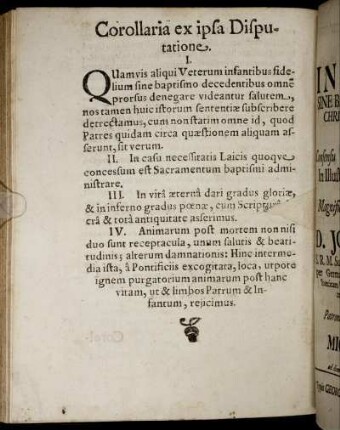 Corollaria ex ipsa Dispu-
tatione.
I.
QUamvis aliqui Veterum infantibus fide-
lium sine baptismo decedentibus omnẽ
prorsus denegare videantur salutem,
nos tamen huic istorum sententiæ subscribere
detrectamus, cum non statim omne id, quod
Patres quidam circa quæstionem aliquam as-
serunt, sit verum.
II. In casu necessitatis Laicis quoqve
concessum est Sacramentum baptismi admi-
nistrare.
III. In vitâ æternâ dari gradus gloriæ,
& in inferno gradus pœnæ, cum Scripturâ
crâ & totâ antiquitate asserimus.
IV. Animarum post mortem non nisi
duo sunt receptacula, unum salutis & beati-
tudinis; alterum damnationis: Hinc interme-
dia ista, â Pontificiis excogitata, loca, utpote
ignem purgatorium animarum post hanc
vitam, ut & limbos Patrum & In-
fantum, rejicimus.
IN
SINE B
CHRI
Consensu
In Illust
Magnif
D. JO
per Germ
Patron
MIC
GEORG